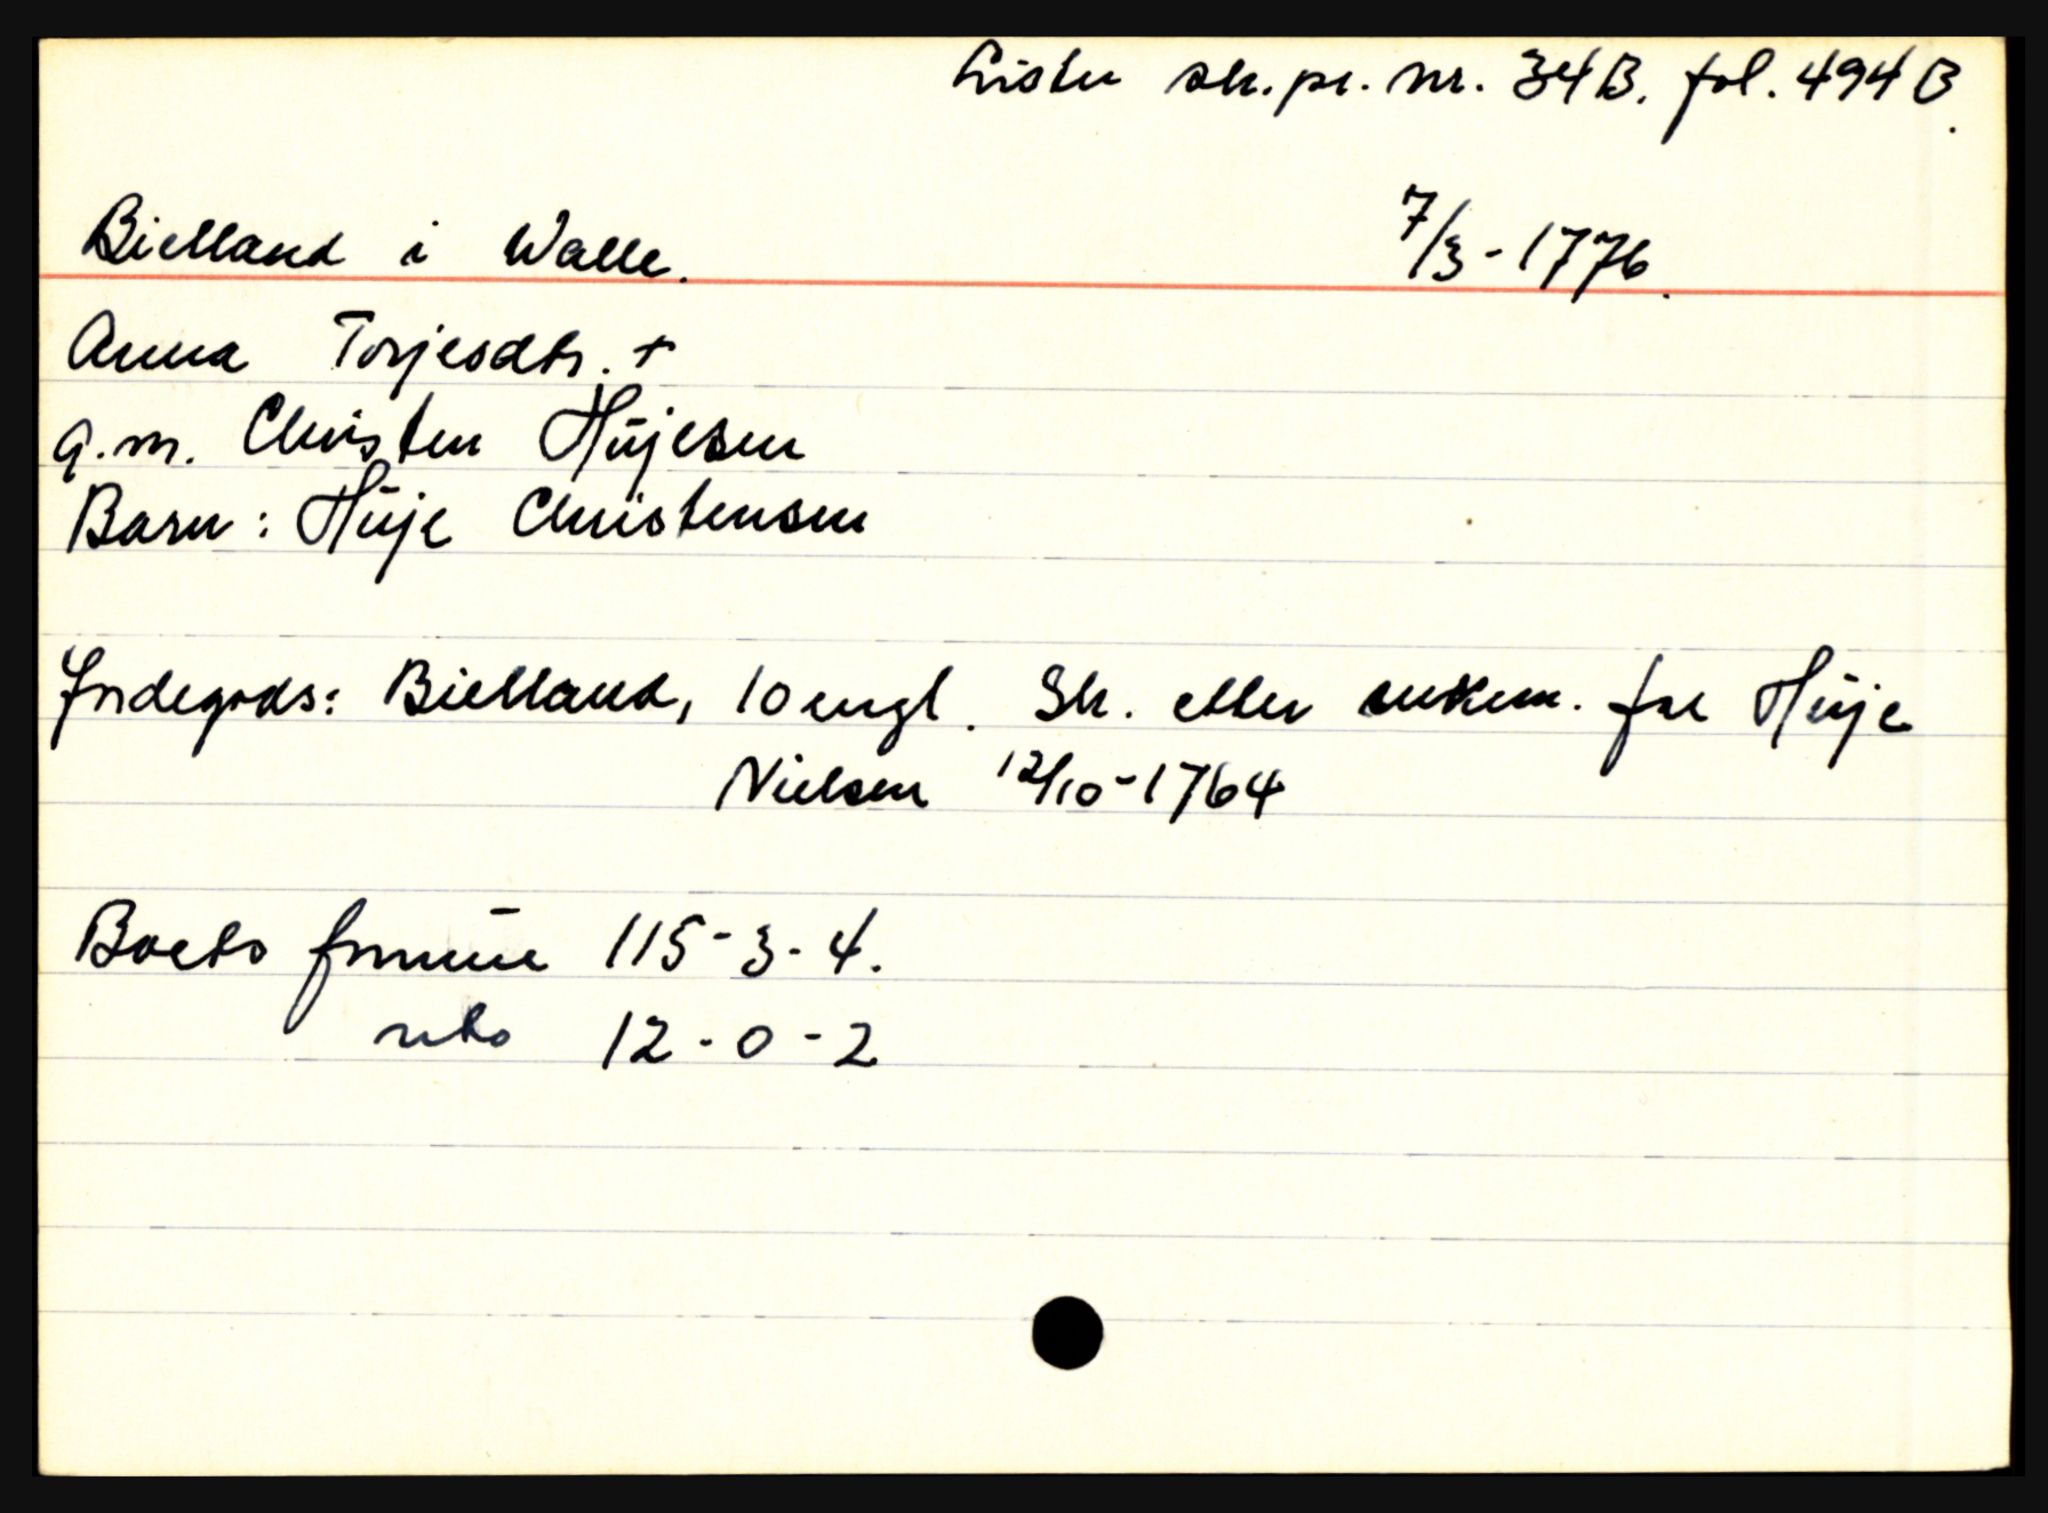 Lister sk.pr. nr. 34B. fol. 494B.
Bielland i Walle. 7/3-1776.
Anna Torjesdtr. +
g.m. Christen Hüjesen
Barn: Hüje Christensen
Jordegods: Bielland, 10 engl. Sk. etter enkem. far Hüje
Nielsen 12/10-1764
Boets formue 115-3-4.
nto 12-0-2